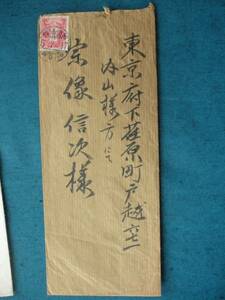 東京府下荏原町戸越六二一
内山様方にて
宗像信次様